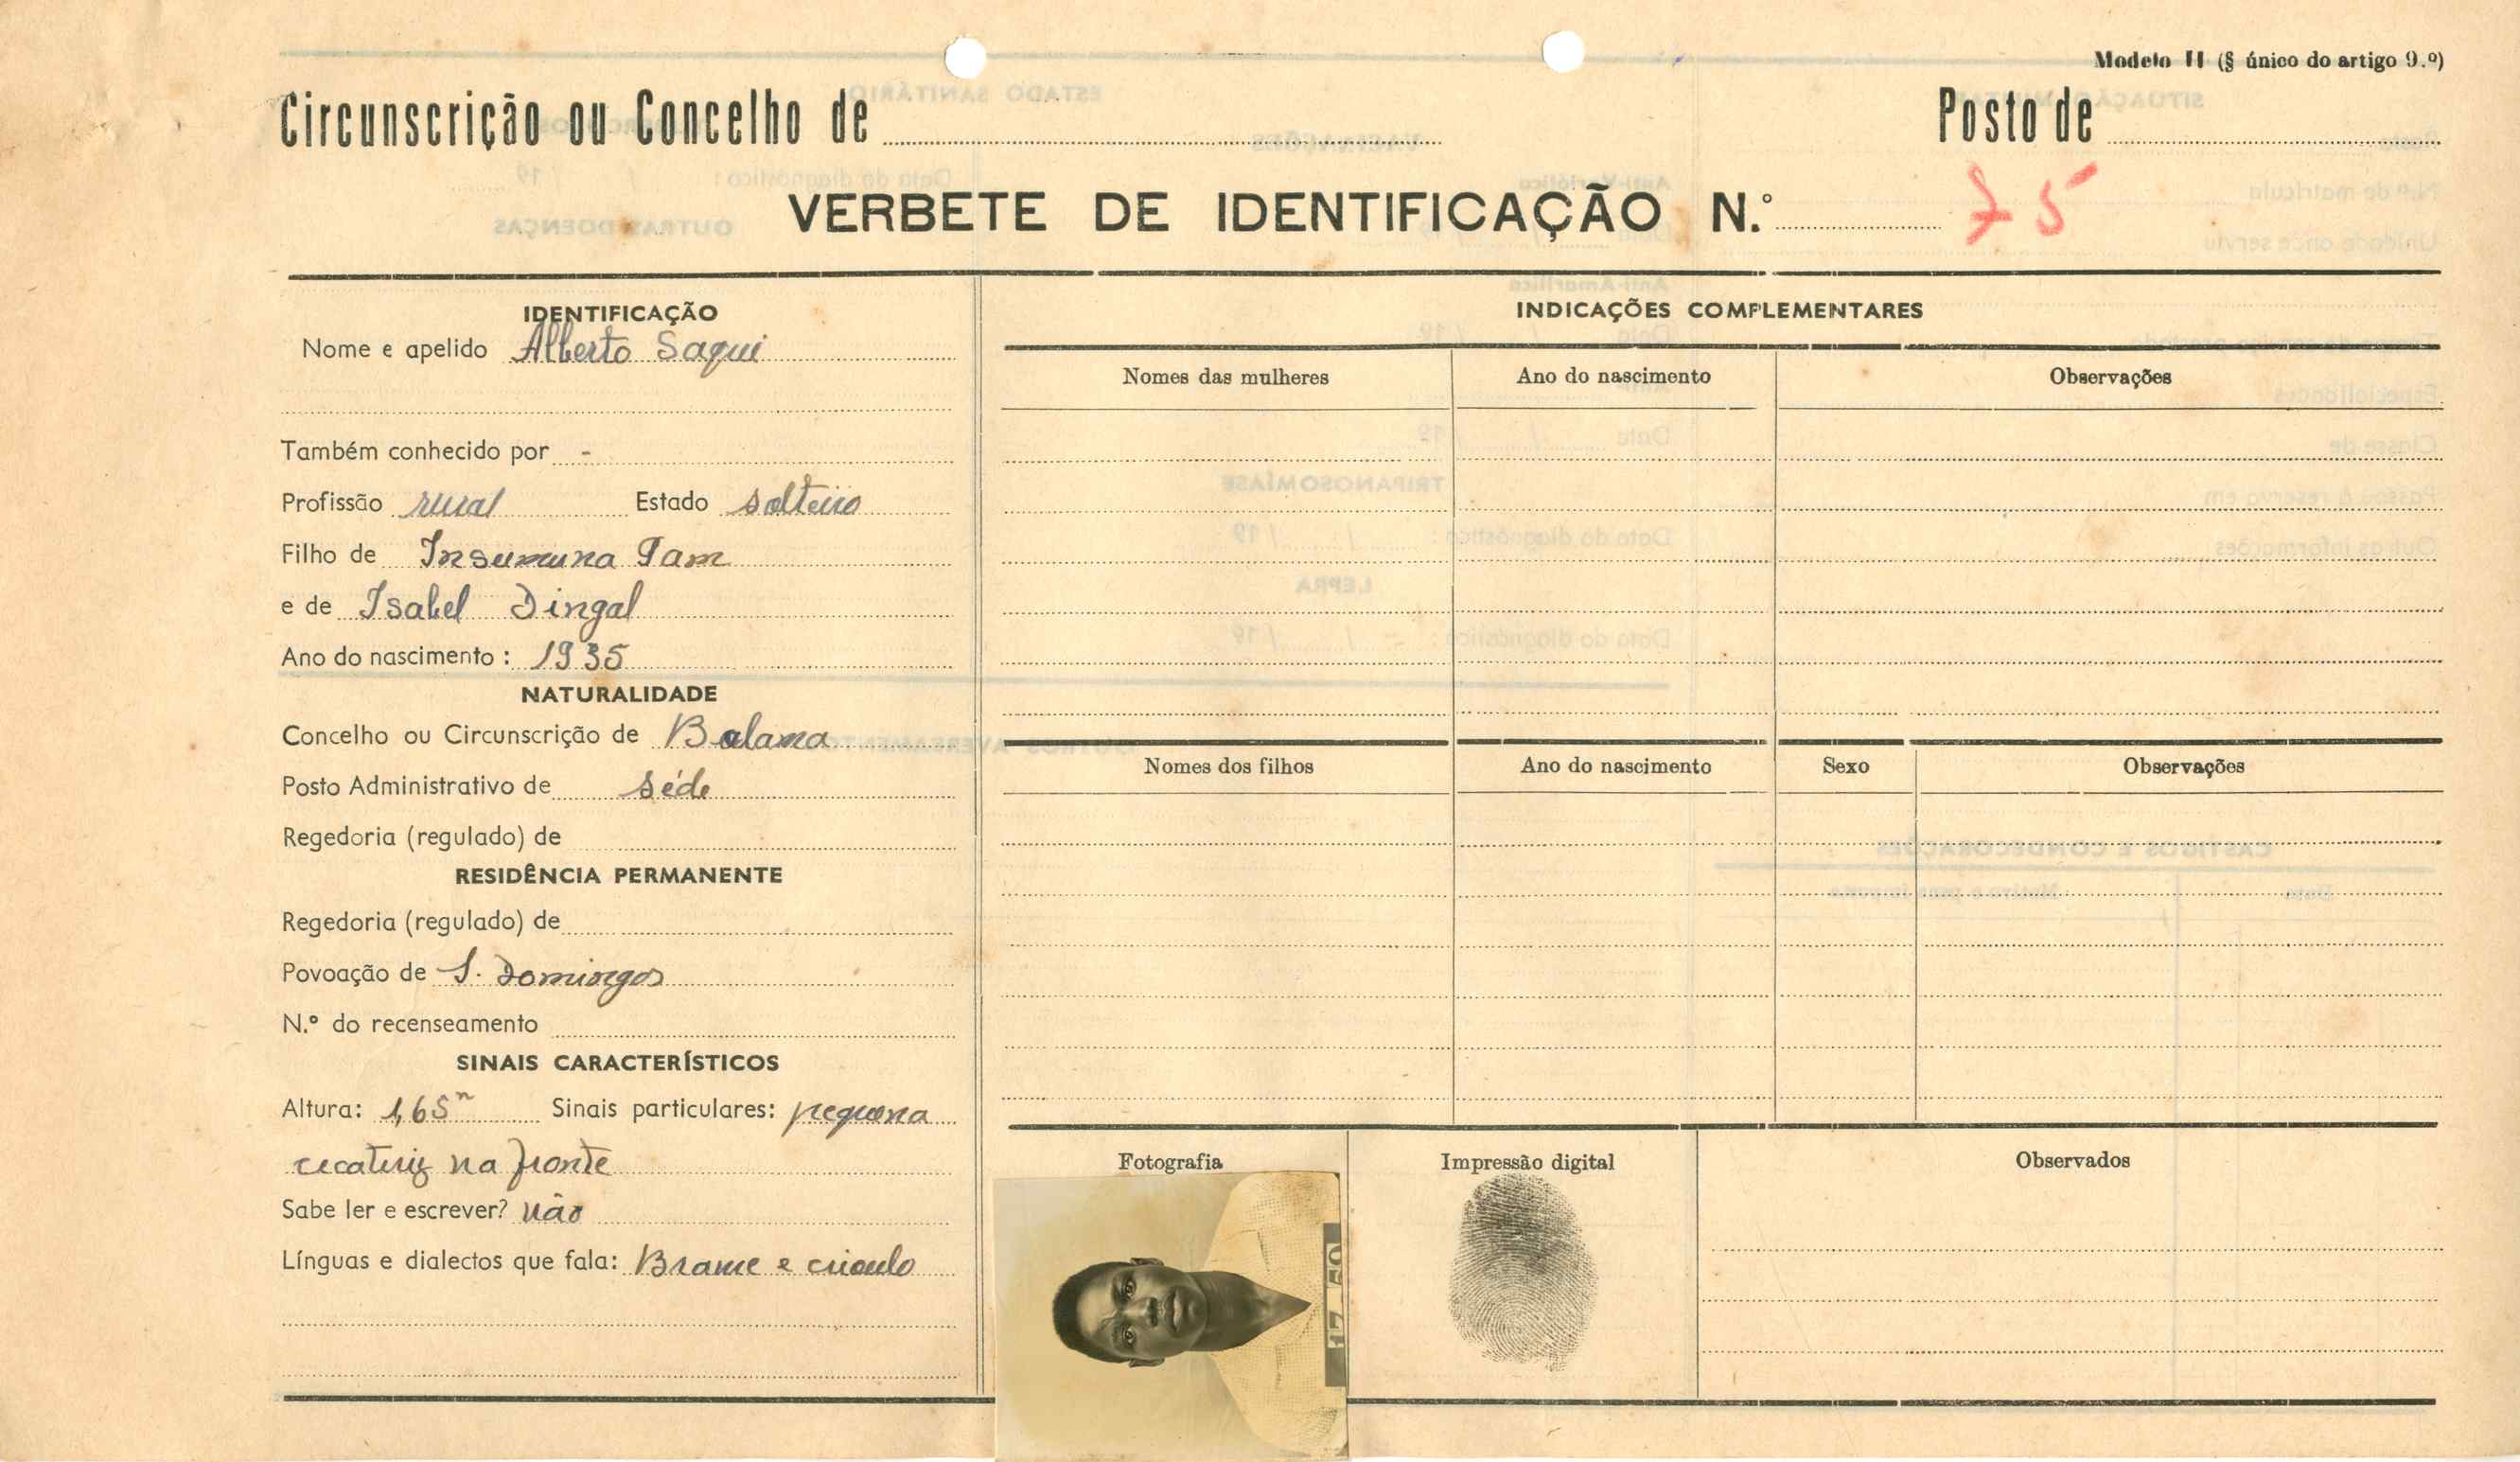 Modelo II (§ único do artigo 9.º)
Circunscrição ou Concelho de
Posto de
VERBETE DE IDENTIFICAÇÃO N.º 75
IDENTIFICAÇÃO
Nome e apelido Alberto Saqui
Também conhecido por -
Profissão rural Estado solteiro
Filho de Insumuna Tam
e de Isabel Dingal
Ano do nascimento : 1935
NATURALIDADE
Concelho ou Circunscrição de Bolama
Posto Administrativo de séde
Regedoria (regulado) de
RESIDÊNCIA PERMANENTE
Regedoria (regulado) de
Povoação de S. Domingos
N.º do recenseamento
SINAIS CARACTERÍSTICOS
Altura: 1,65m Sinais particulares: pequena
cicatriz na fronte
Sabe ler e escrever? não
Línguas e dialectos que fala: Brame e crioulo
INDICAÇÕES COMPLEMENTARES
Nomes das mulheres Ano do nascimento Observações
Nomes dos filhos Ano do nascimento Sexo Observações
Fotografia Impressão digital Observados